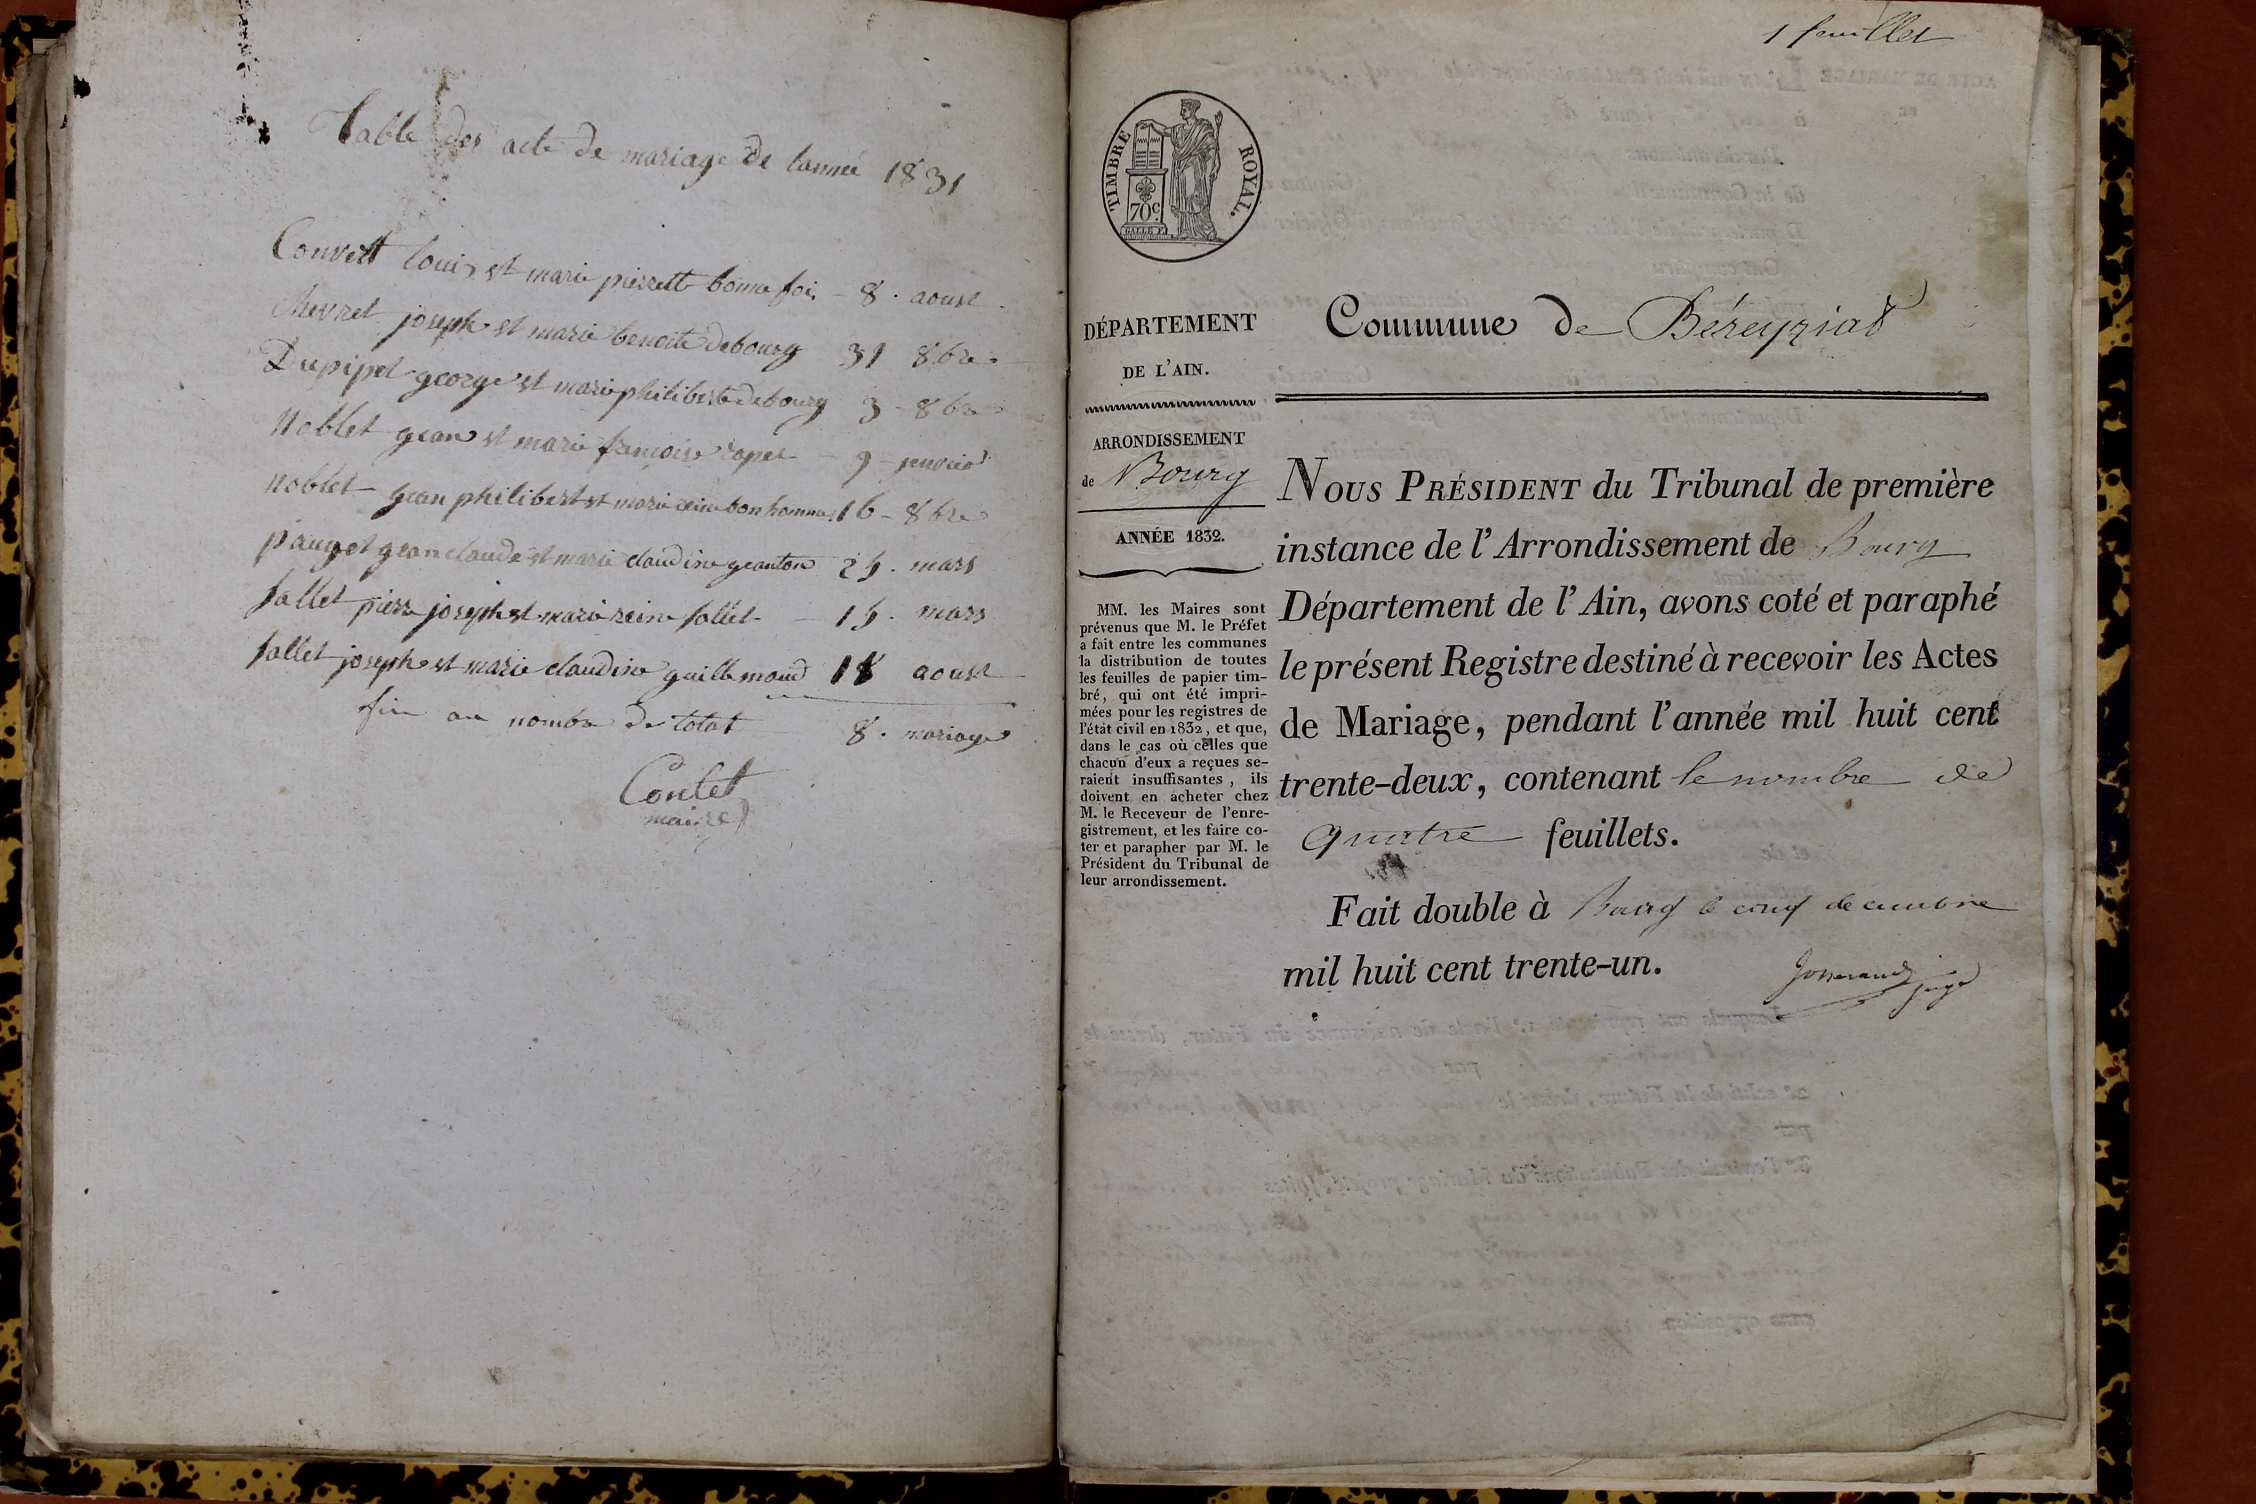 Table des acte de mariage de lannée 1831
Convert louis et marie pierrett bonnefoi - 8 . aoust
Chevret joseph et marie benoite debourg 31 8bre
Dupipet george et marie philiberte debourg 3 - 8bre
Noblet gean et marie françoise - 9 - jenvier
Noblet gean philibert et marie reine bonhomme 16 - 8bre
pauget gean claude et marie claudine geanton mars
follet pierre joseph et marie reine follet - mars
follet joseph et marie claudine guillemaud 18 aoust
fin au nombre de totat 8 . mariage
Contet
maire
1 feuillet
TIMBRE ROYAL.
70c
DÉPARTEMENT
DE L'AIN.
ARRONDISSEMENT
de Bourg
ANNÉE 1832.
MM. les Maires sont
prévenus que M. le Préfet
a fait entre les communes
la distribution de toutes
les feuilles de papier tim-
bré, qui ont été impri-
mées pour les registres de
l'état civil en 1832, et que,
dans le cas où celles que
chacun d'eux a reçues se-
raient insuffisantes, ils
doivent en acheter chez
M. le Receveur de l'enre-
gistrement, et les faire co-
ter et parapher par M. le
Président du Tribunal de
leur arrondissement.
Commune de Béreyziat
NOUS PRÉSIDENT du Tribunal de première
instance de l'Arrondissement de Bourg
Département de l'Ain, avons coté et paraphé
le présent Registre destiné à recevoir les Actes
de Mariage, pendant l'année mil huit cent
trente-deux, contenant le nombre de
quatre feuillets.
Fait double à Bourg le cinq decembre
mil huit cent trente-un.
Josserand
juge